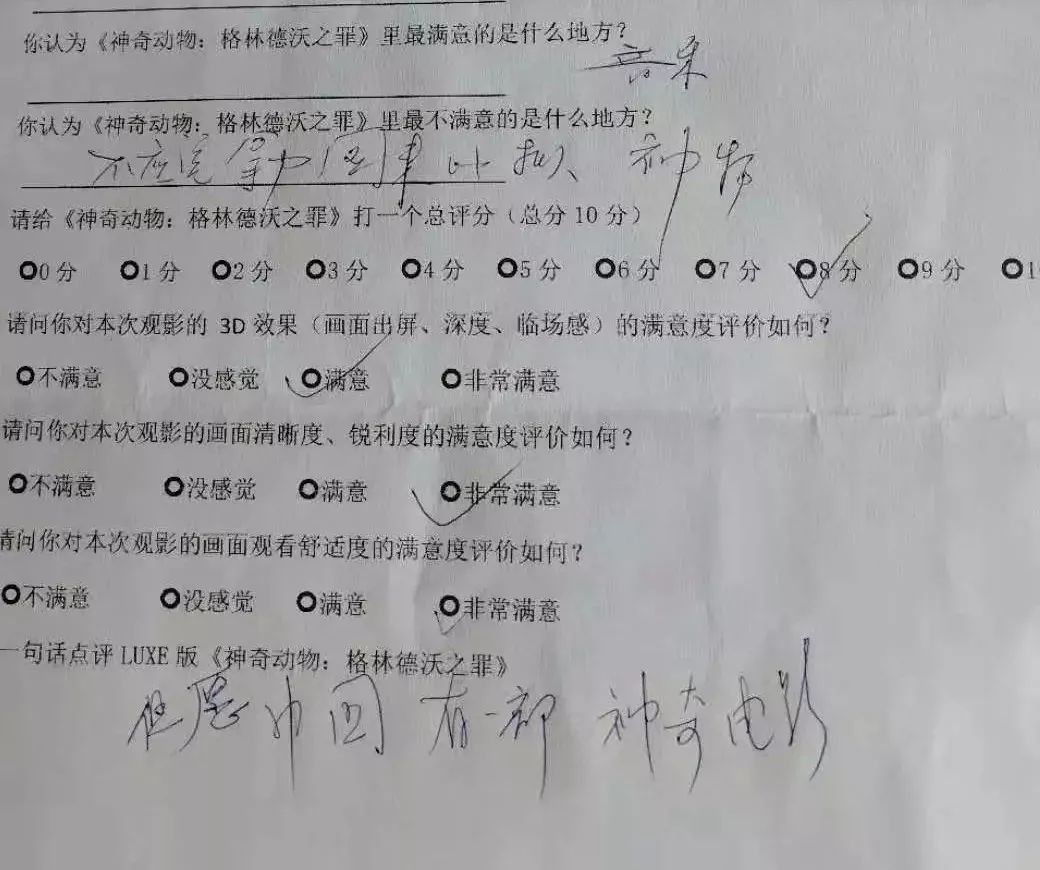 你认为《神奇动物：格林德沃之罪》里最满意的是什么地方？
音乐
你认为《神奇动物：格林德沃之罪》里最不满意的是什么地方？
不应该拿中国来 神
请给《神奇动物：格林德沃之罪》打一个总评分（总分 10 分）
0 分 1 分 2 分 3 分 4 分 5 分 6 分 7 分 8 分 9 分 1
请问你对本次观影的 3D 效果（画面出屏、深度、临场感）的满意度评价如何？
不满意 没感觉 满意 非常满意
请问你对本次观影的画面清晰度、锐利度的满意度评价如何？
不满意 没感觉 满意 非常满意
请问你对本次观影的画面观看舒适度的满意度评价如何？
不满意 没感觉 满意 非常满意
一句话点评 LUXE 版《神奇动物：格林德沃之罪》
但愿中国有一部神奇电影